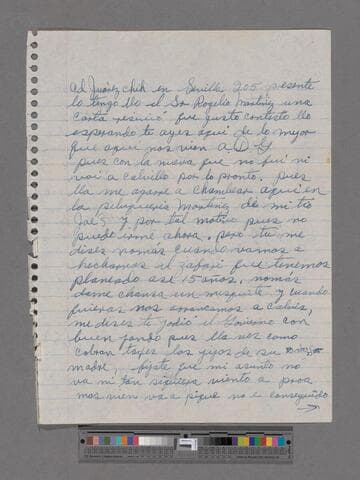 Cd Juárez chih en Sevilla 205 presente
lo tengo llo el Sr Rogelio Martínez una
carta resivi que gusto contesto llo
esperando te ayes aqui de lo mejor
que aqui nos vien A D. G
pues con la nueva que no fui ni
voi a calvillo por lo pronto, pues
lla me agarre a chambear aqui en
la peluqueria Martínez de mi tio
y por tal motivo pues no
puedo irme ahora, pero tu me
dises nomás cuando vamos a
hecharnos el que tenemos
planeado ase 15 años, nomás
dame chansa un y cuando
quieras nos arrancamos a
me dises te jodio el Govierno con
buen pues lla ves como
cobran los yijos de su
madre, fijate que mi asunto no
va ni tan siquiera viento a proa
mas vien va a pique no e conseguido